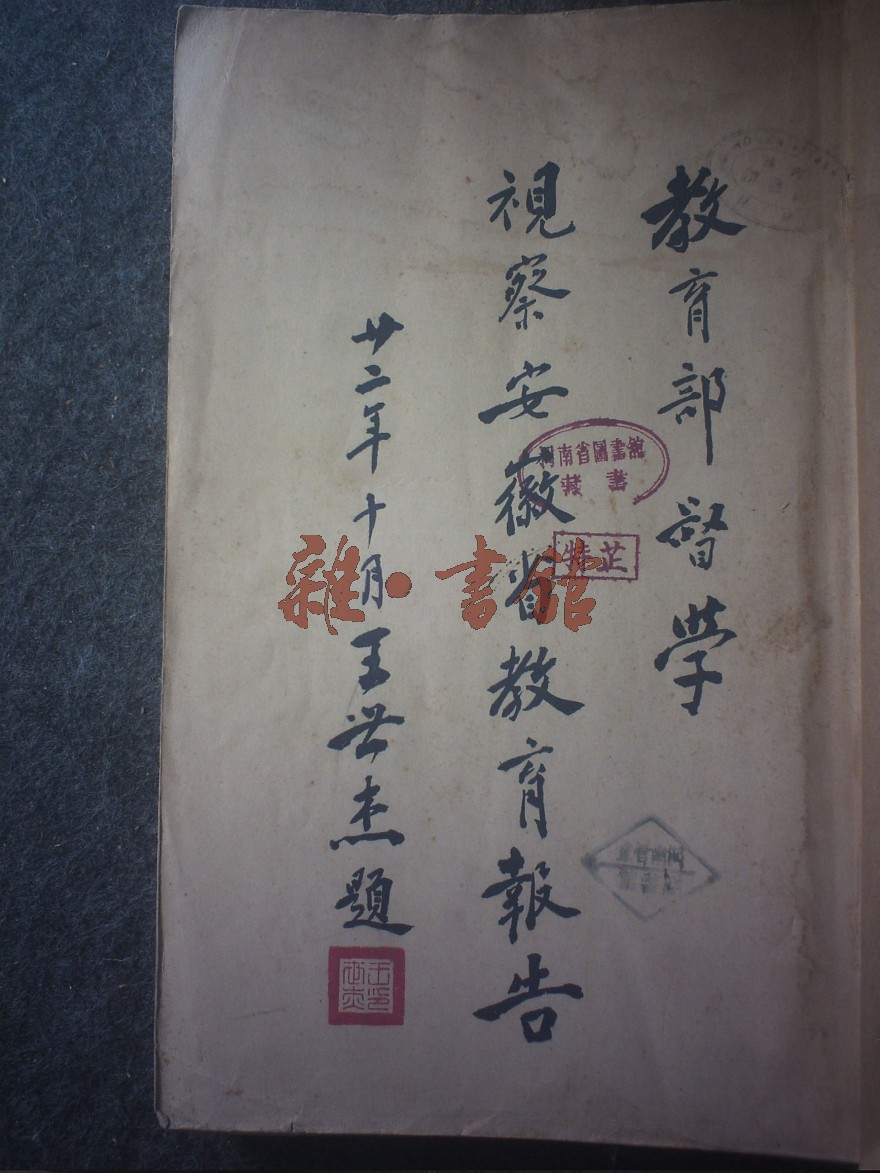 教育部督学
視察安徽省教育報告
廿二年十月王世杰題
河南省圖書館
藏書
雜·書館